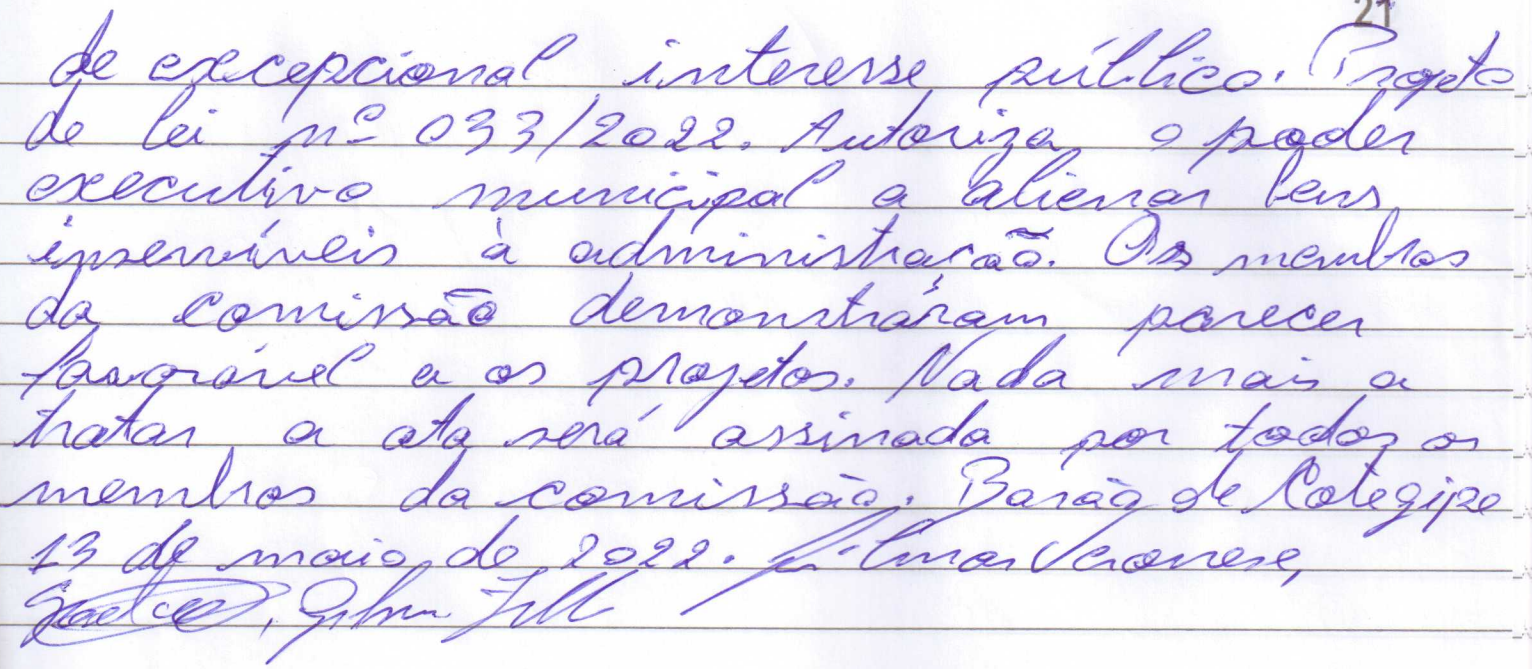 21
de excepcional interesse público. Projeto
de lei nº 033/2022. Autoriza o poder
executivo municipal a alienar bens
inservíveis à administração. Os membros
da comissão demonstraram parecer
favorável a os projetos. Nada mais a
tratar a ata será assinada por todos os
membros da comissão. Barão de Cotegipe
13 de maio de 2022. Gilmar Veronese,